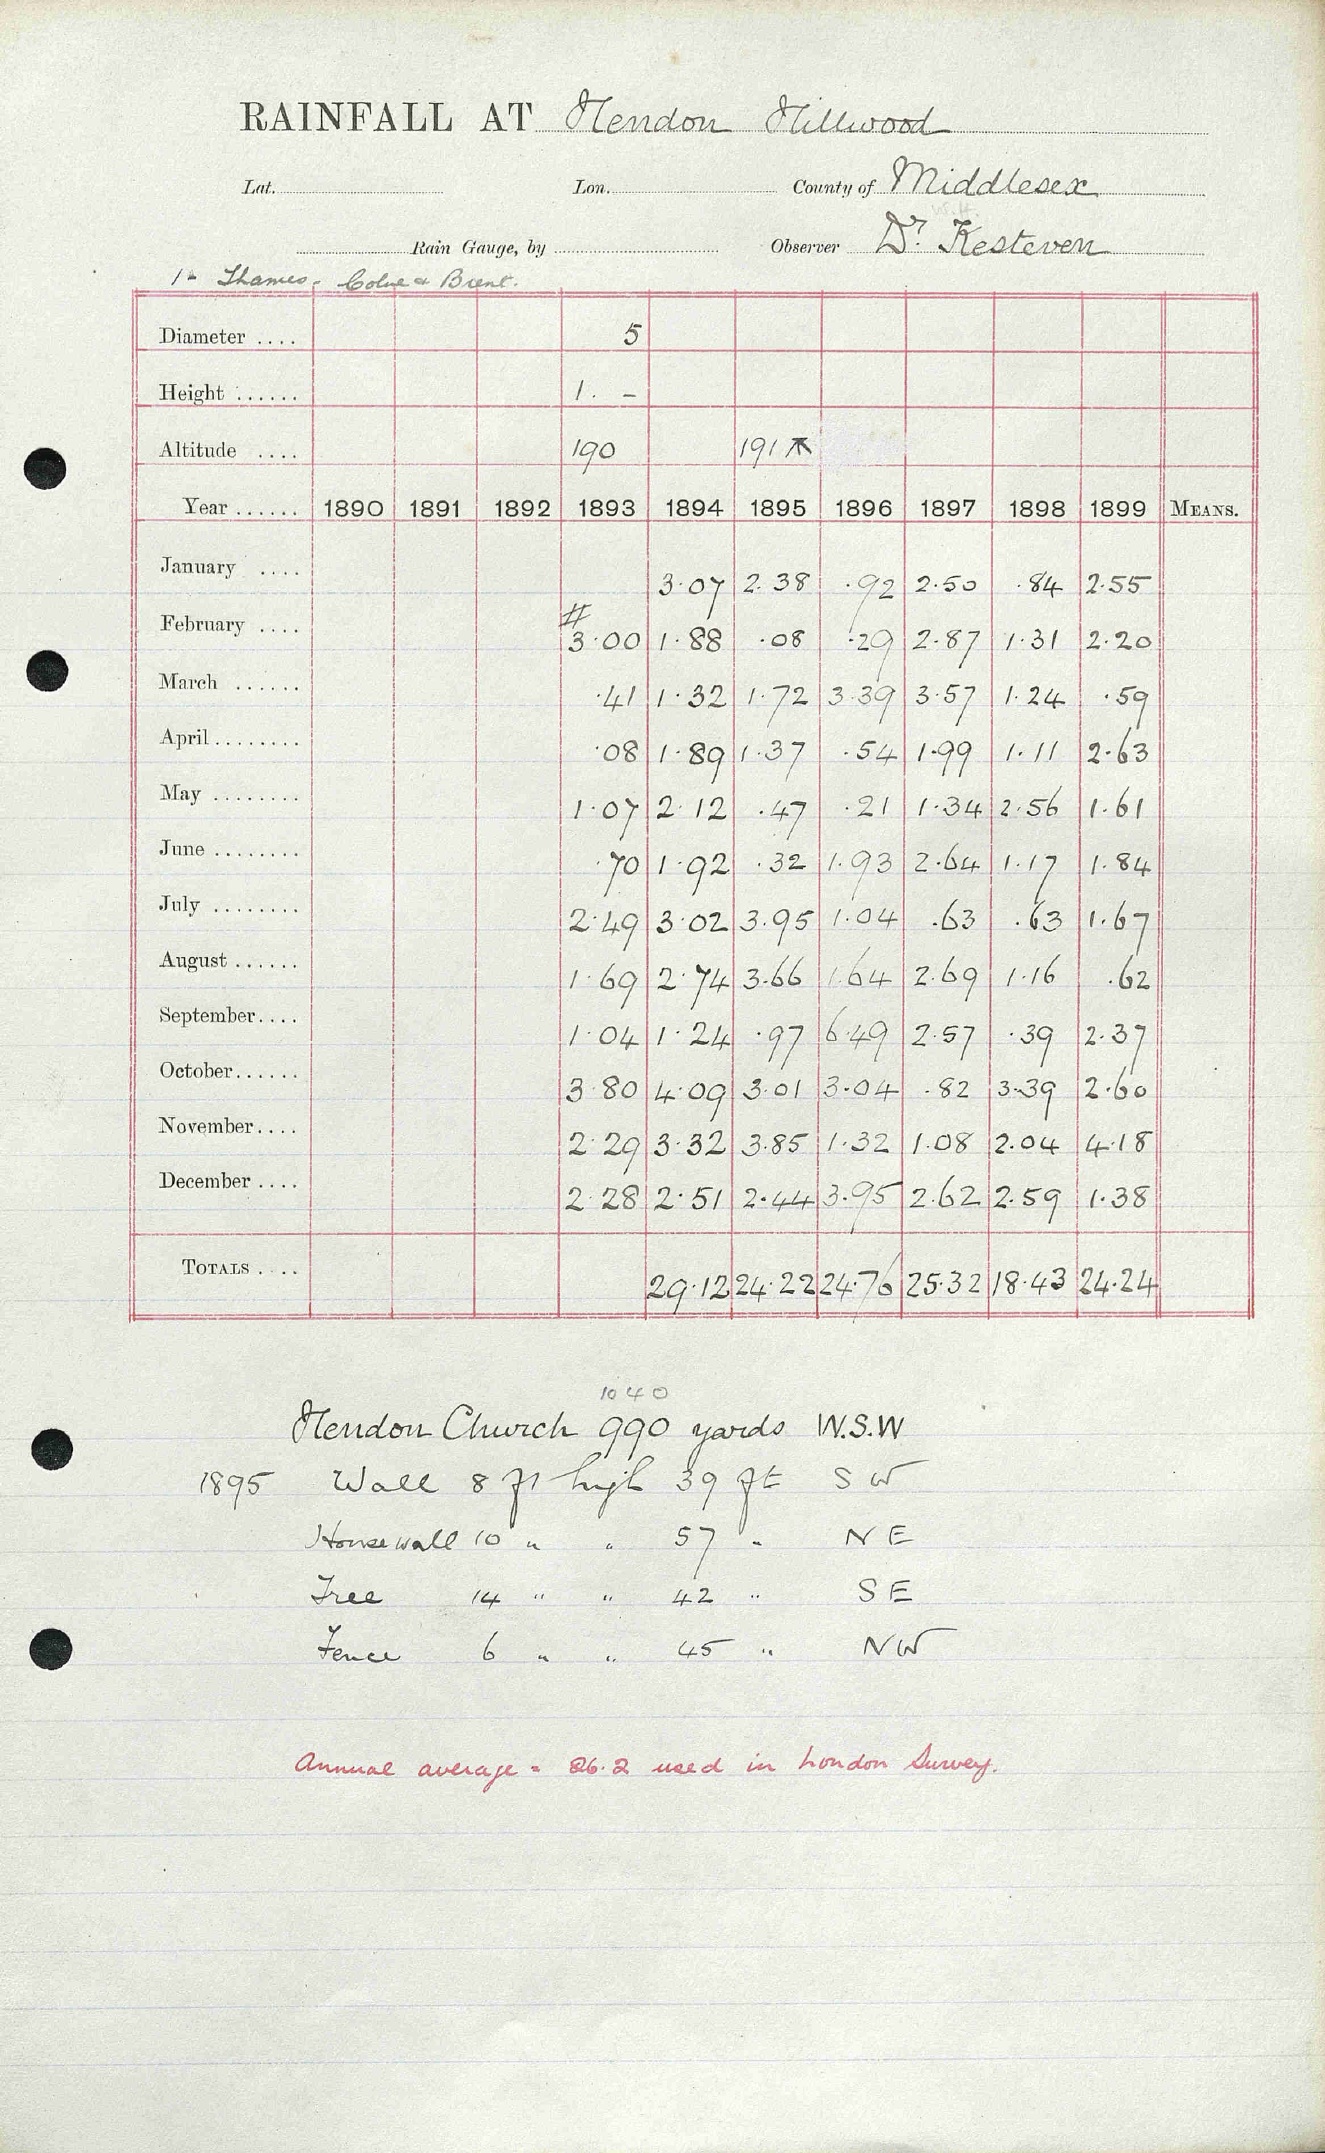 RAINFALL AT Hendon Hillwood
Lat. Lon. County of Middlesex
Rain Gauge, by Observer Dr. Kesteven
Thames, Colne & Brent.
Diameter .... 5
Height ...... 1. -
Altitude .... 190 191
Year ...... 1890 1891 1892 1893 1894 1895 1896 1897 1898 1899 MEANS.
January .... 3.07 2.38 .92 2.50 .84 2.55
February .... # 3.00 1.88 .08 .29 2.87 1.31 2.20
March ...... .41 1.32 1.72 3.39 3.57 1.24 .59
April ........ .08 1.89 1.37 .54 1.99 1.11 2.63
May ........ 1.07 2.12 .47 .21 1.34 2.56 1.61
June ........ .70 1.92 .32 1.93 2.64 1.17 1.84
July ........ 2.49 3.02 3.95 1.04 .63 .63 1.67
August ...... 1.69 2.74 3.66 1.64 2.69 1.16 .62
September .... 1.04 1.24 .97 6.49 2.57 .39 2.37
October ...... 3.80 4.09 3.01 3.04 .82 3.39 2.60
November .... 2.29 3.32 3.85 1.32 1.08 2.04 4.18
December .... 2.28 2.51 2.44 3.95 2.62 2.59 1.38
TOTALS .... 29.12 24.22 24.76 25.32 18.43 24.24
1040
Hendon Church 990 yards W.S.W
1895 Wall 8 ft high 39 ft SW
House wall 10 " " 57 " NE
Tree 14 " " 42 " SE
Fence 6 " " 45 " NW
Annual average = 26.2 used in London Survey.